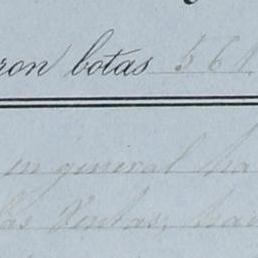 ron botas 561
en general ha
las Ventas, hav